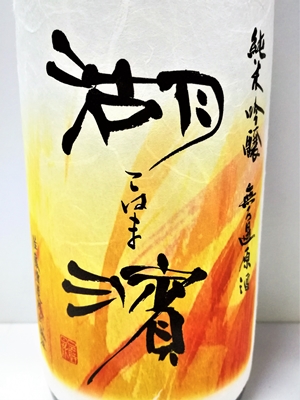 純米吟醸 無濾過原酒
湖
こはま
濱